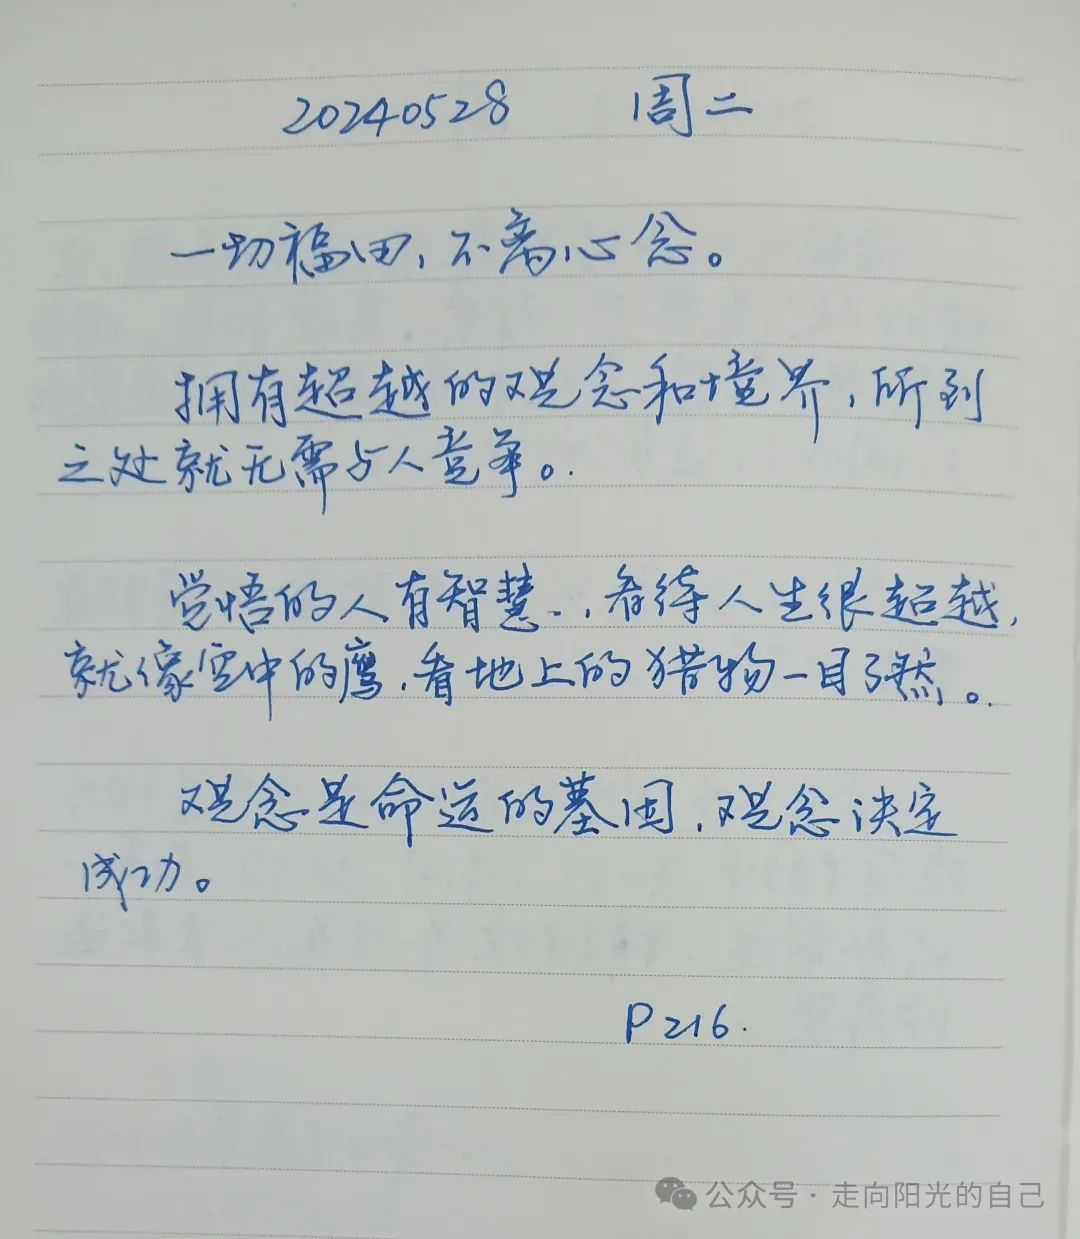 20240528 周二
一切福田，不离心念。
拥有超越的观念和境界，所到
之处就无需与人竞争。
觉悟的人有智慧，看待人生很超越，
就像空中的鹰，看地上的猎物一目了然。
观念是命运的基因，观念决定
成功。
P216.
公众号·走向阳光的自己